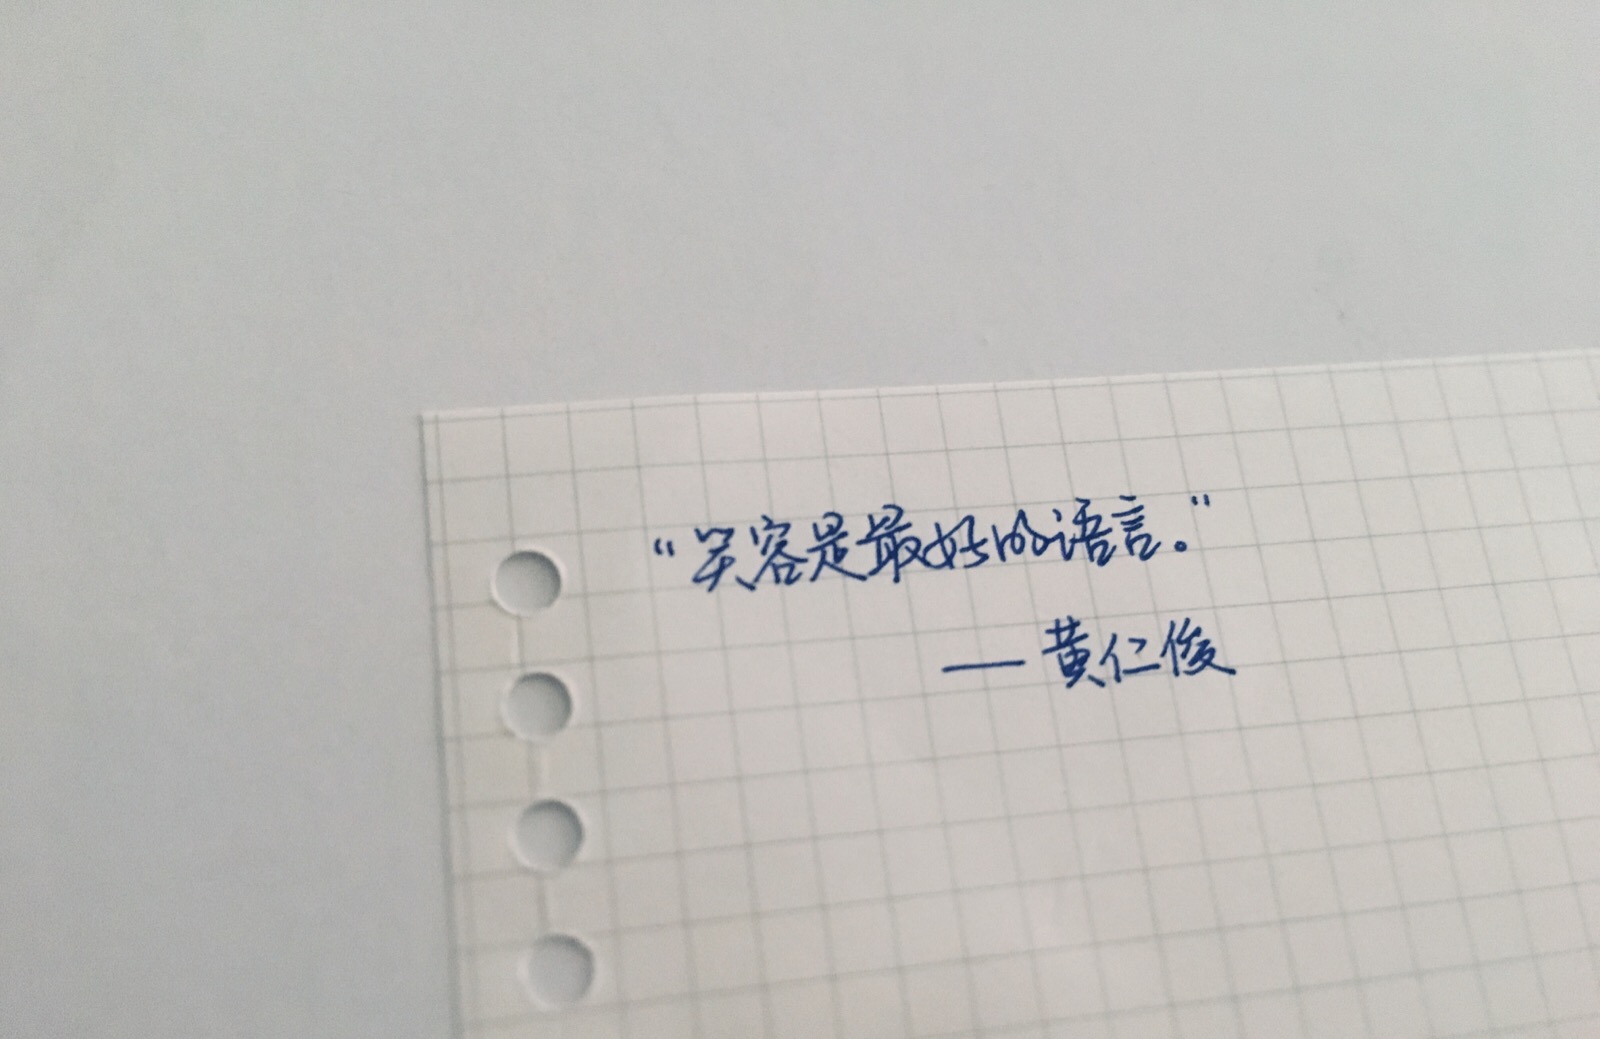 “笑容是最好的语言。”
—黄仁俊